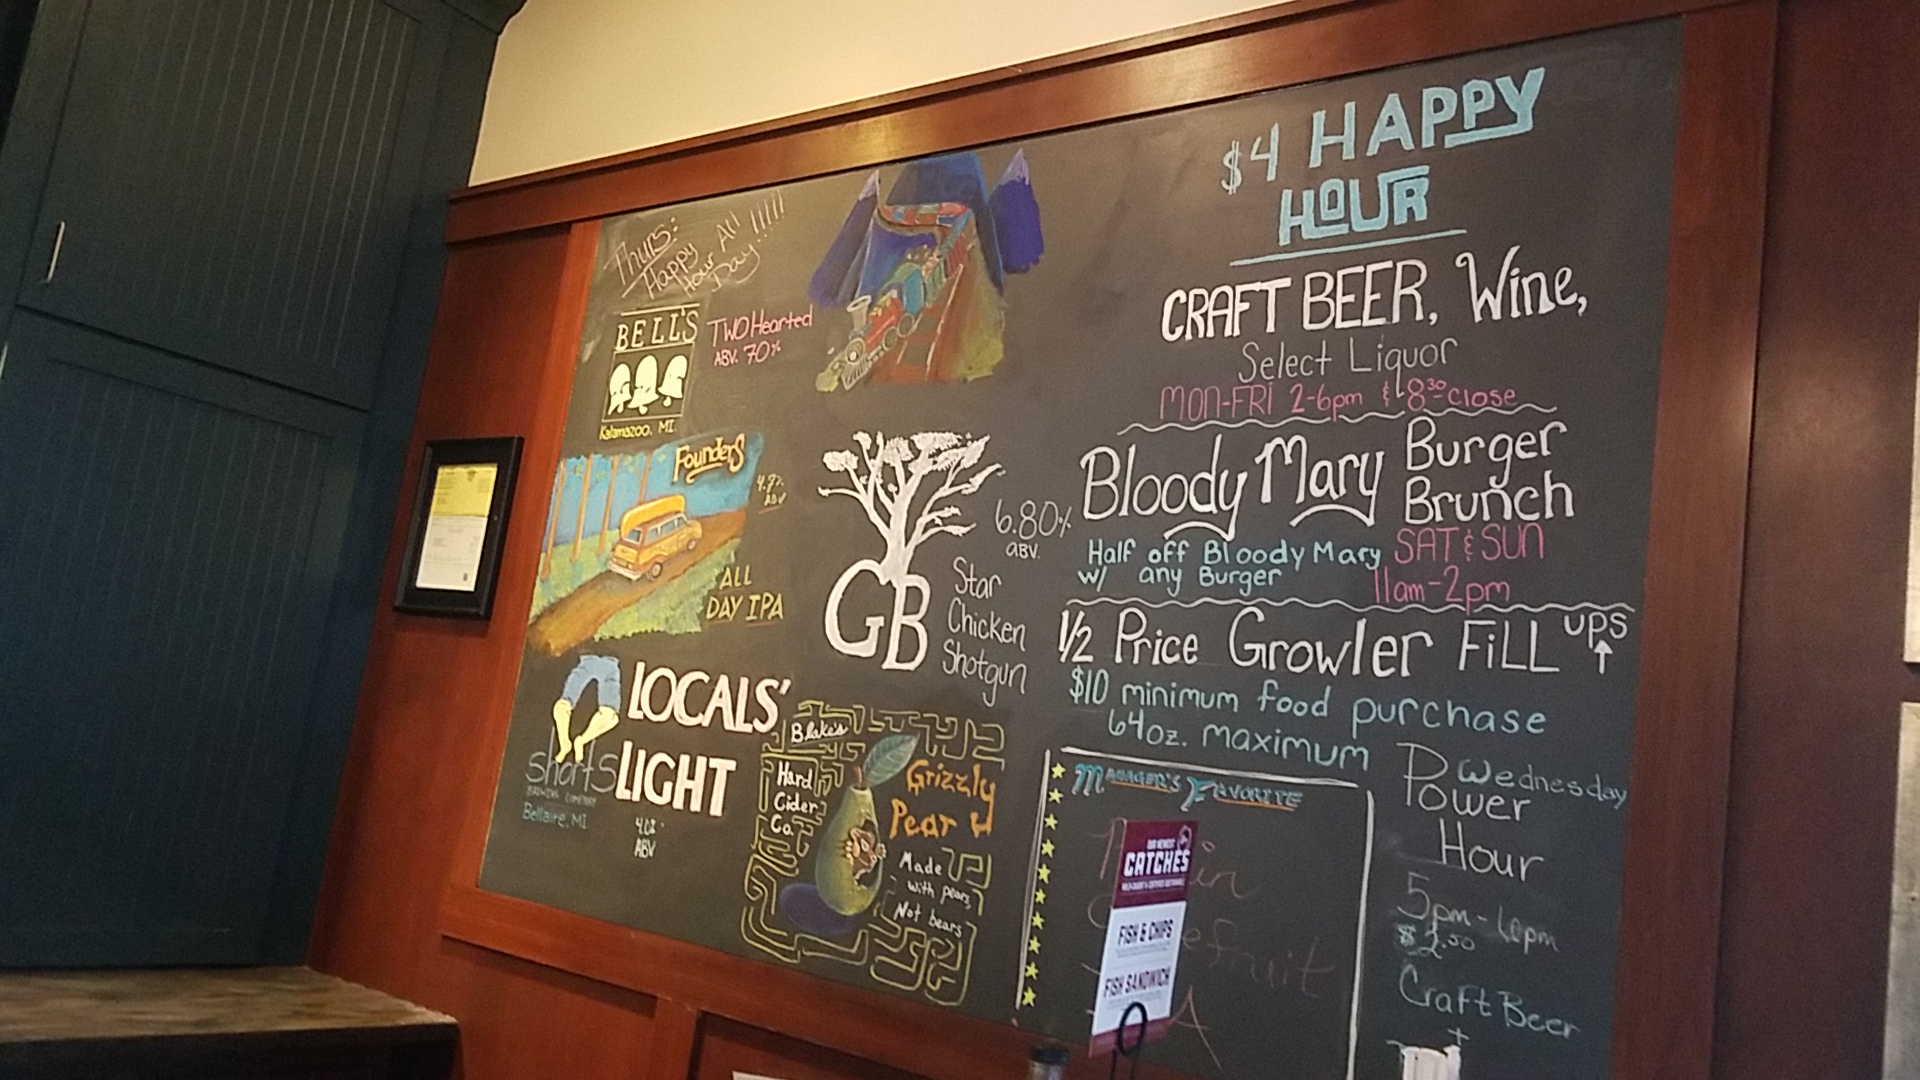 Thurs:
Happy
Hour All
Day!!!!!
BELL'S
Kalamazoo, MI.
TWO Hearted
ABV. 70%
Founders
4.7%
ABV
ALL
DAY IPA
GB
6.80%
ABV.
Star
Chicken
Shotgun
LOCALS'
LIGHT
shorts
BREWING COMPANY
Bellaire, MI
ABV
Blake's
Hard
Cider
Co.
Grizzly
Pear
Made
with pears,
Not bears
$4 HAPPY
HOUR
CRAFT BEER, Wine,
Select Liquor
MON-FRI 2-6pm & 8:30-close
Bloody Mary Burger
Brunch
Half off Bloody Mary
w/ any Burger
SAT & SUN
11am-2pm
1/2 Price Growler FiLL UPS
$10 minimum food purchase
64oz. maximum
MANAGER'S FAVORITE
OUR NEWEST
CATCHES
FISH & CHIPS
FISH SANDWICH
Wednesday
Power
Hour
5pm-6pm
$2.50
Craft Beer
+